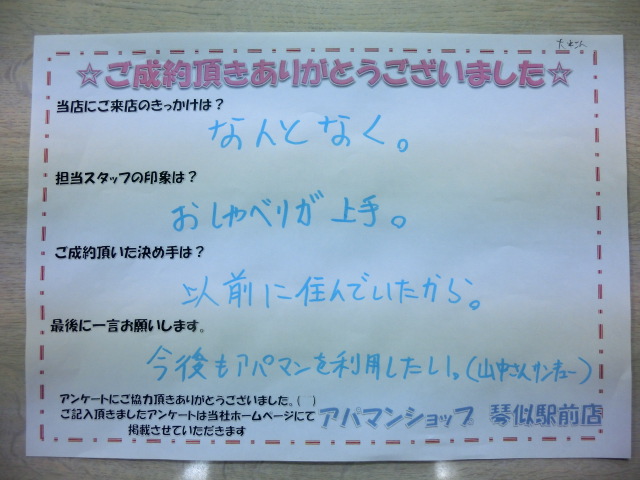 ☆ご成約頂きありがとうございました☆
当店にご来店のきっかけは？
なんとなく。
担当スタッフの印象は？
おしゃべりが上手。
ご成約頂いた決め手は？
以前に住んでいたから。
最後に一言お願いします。
今後もアパマンを利用したい。(山中さんサンキュー)
アンケートにご協力頂きありがとうございました。(　)
ご記入頂きましたアンケートは当社ホームページにて
掲載させていただきます
アパマンショップ 琴似駅前店